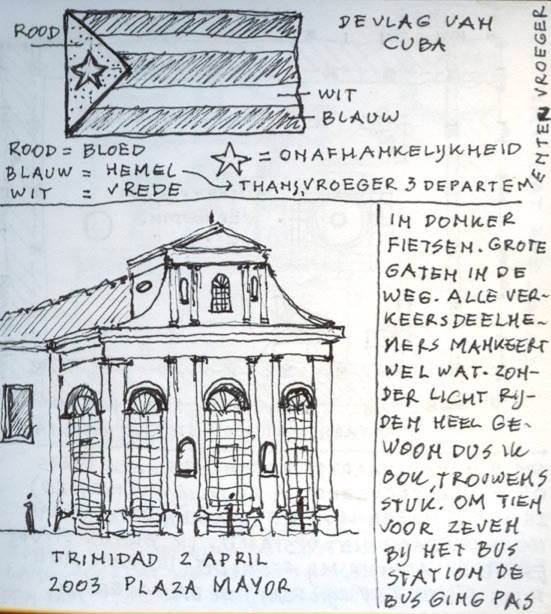 DE VLAG VAN
CUBA
ROOD
WIT
BLAUW
ROOD = BLOED
BLAUW = HEMEL
WIT = VREDE
☆ = ONAFHANKELIJKHEID
→ THANS, VROEGER 3 DEPARTEM
ENTEN VROEGER
IN DONKER
FIETSEN. GROTE
GATEN IN DE
WEG. ALLE VER-
KEERSDEELNE-
MERS MANKEERT
WEL WAT. ZON-
DER LICHT RIJ-
DEN HEEL GE-
WOON DUS IK
OOK, TROUWENS
STUK. OM TIEN
VOOR ZEVEN
BIJ HET BUS
STATION DE
BUS GING PAS
TRINIDAD 2 APRIL
2003 PLAZA MAYOR